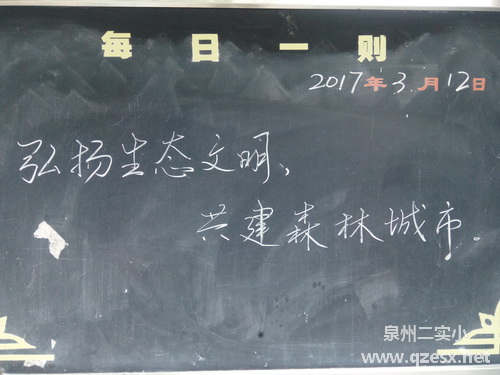 每日一则
2017年3月12日
弘扬生态文明,
共建森林城市.
泉州二实小
www.qzesx.net